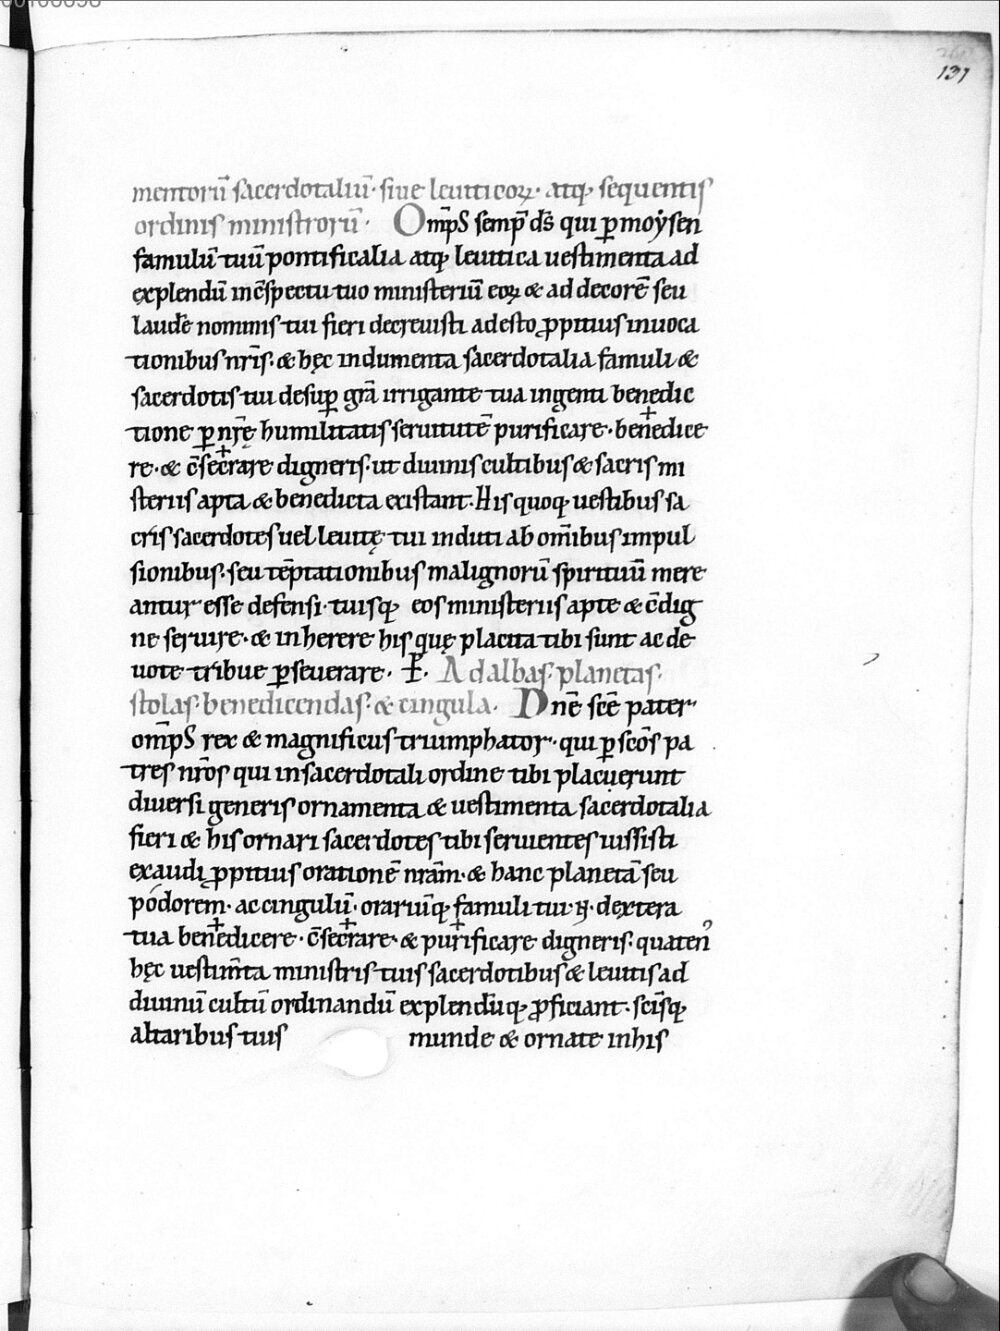 131
mentorū sacerdotaliū· siue leuiticoꝝ· atq; sequentis
ordinis ministrorū· Om̅ps semꝑ d̅s qui ꝑ moẏsen
famulū tuū pontificalia atq; leuitica uestimenta ad
explendū in c̄spectu tuo ministeriū eoꝝ & ad decorē seu
laudē nominis tui fieri decreuisti adesto ꝓpitius inuoca
tionibus nr̄is· & hęc indumenta sacerdotalia famuli &
sacerdotis tui desuꝑ gr̄a irrigante tua ingenti benedic
tione ꝑ nr̄ę humilitatis seruitutē purificare· bene✝dice
re· & c̄se✝crare digneris· ut diuinis cultibus & sacris mi
steriis apta & benedicta existant· His quoq; uestibus sa
cris sacerdotes uel leuitę tui induti ab om̄ibus impul
sionibus· seu tēptationibus malignorū spirituū mere
antur esse defensi· tuisq; eos ministeriis apte & c̄dig
ne seruire· & inherere his quę placita tibi sunt ac de
uote tribue ꝑseuerare· Ꝑ· Ad albas· planetas·
stolas· benedicendas· & cingula· Dn̄e sc̄e pater
om̅ps rex & magnificus triumphator· qui ꝑ sc̄os pa
tres nr̄os qui in sacerdotali ordine tibi placuerunt
diuersi generis ornamenta & uestimenta sacerdotalia
fieri & his ornari sacerdotes tibi seruientes iussisti
exaudi ꝓpitius orationē nr̄am· & hanc planetā seu
pódorem· ac cingulū· orariūq; famuli tui· ij· dextera
tua bene✝dicere· c̄se✝crare· & puri✝ficare digneris· quatenꝰ
hęc uestim̄ta ministris tuis sacerdotibus & leuitis ad
diuinū cultū ordinandū explendūq; ꝓficiant· sc̄isq;
altaribus tuis munde & ornate in his